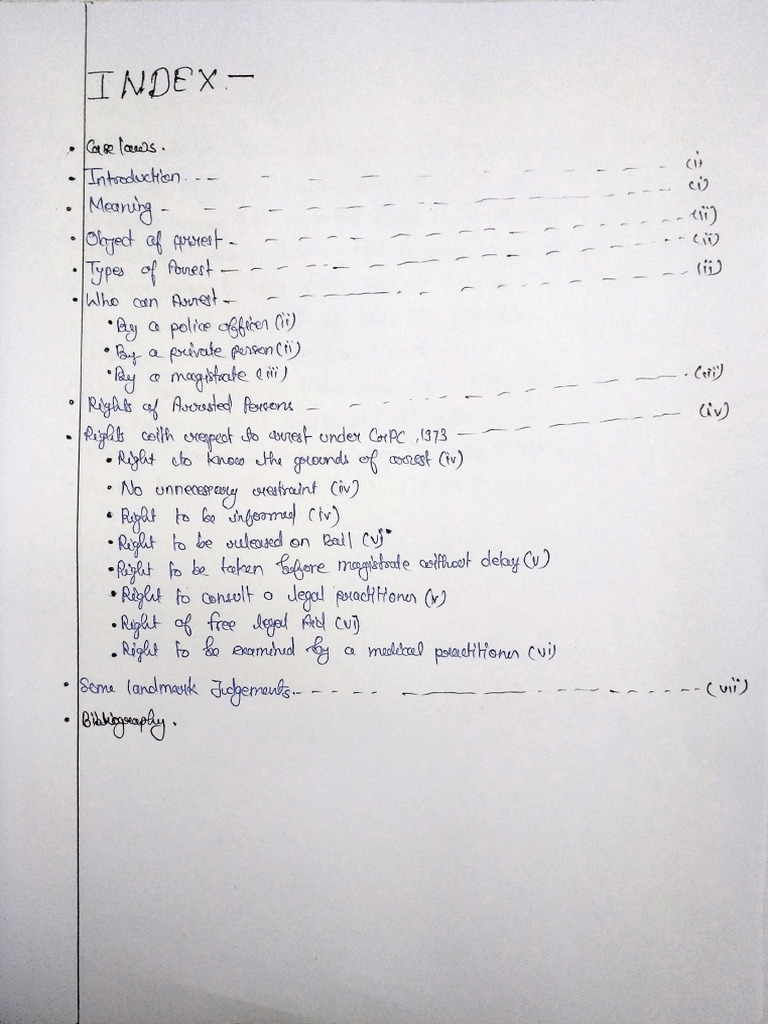 INDEX.-
• Case laws.
• Introduction. - - - - - - - - - (i)
• Meaning - - - - - - - - - (i)
• Object of Arrest - - - - - - - - - (ii)
• Types of Arrest - - - - - - - - - (ii)
• Who can Arrest - - - - - - - - - (ii)
• By a police officer (ii)
• By a private person (ii)
• By a magistrate (iii)
• Rights of Arrested Persons - - - - - - (iii)
• Rights with respect to arrest under CrPC, 1973 - - - - - (iv)
• Right to know the grounds of arrest (iv)
• No unnecessary restraint (iv)
• Right to be informed (iv)
• Right to be released on Bail (v)
• Right to be taken before magistrate without delay (v)
• Right to consult a legal practitioner (v)
• Right of free legal Aid (vi)
• Right to be examined by a medical practitioner (vi)
• Some landmark Judgements - - - - - - - - - (vii)
• Bibliography.